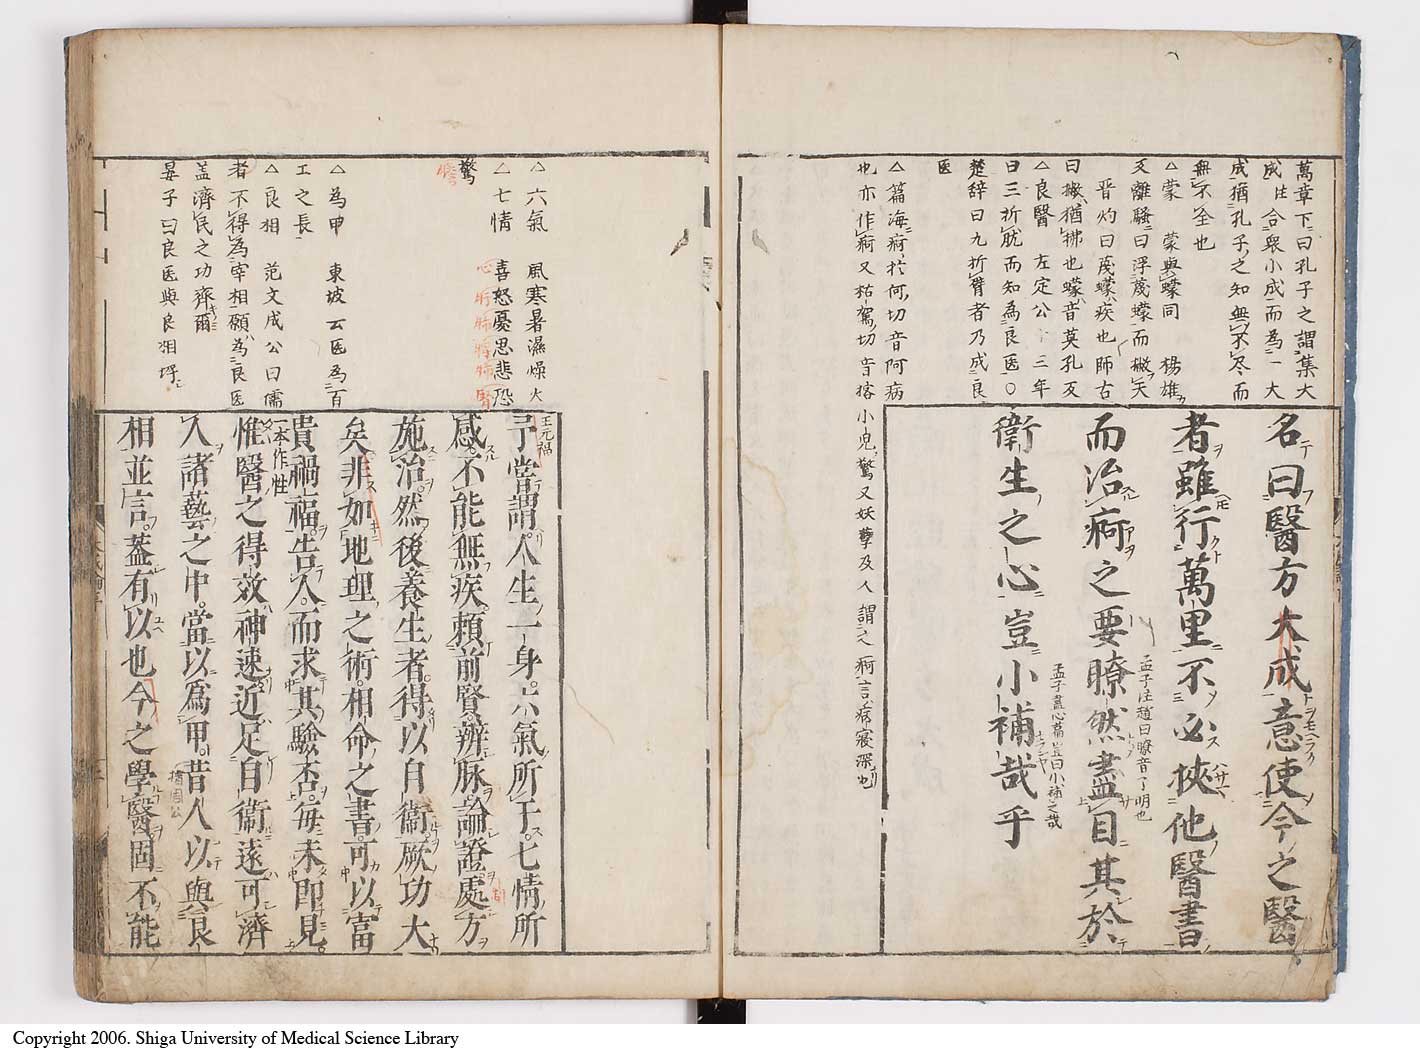 萬章下曰孔子之謂集大
成註合衆小成而為一大
成猶孔子之知無不尽而
無不至也
△蒙 蒙與蠓同 楊雄
反離騷曰浮蔑蠓而撇天
晋灼曰蔑蠓疾也師古
曰撇猶拂也蠓音莫孔反
△良醫 左定公十三年
曰三折肱而知為良医○
楚辞曰九折臂者乃成良
医
△篇海痾於何切音阿病
也亦作疴又枯駕切音髂小児驚又妖孽及人謂之痾言病寖深也
名曰醫方大成意使今之醫
者雖行萬里不必挾他醫書
而治痾之要瞭然盡目其於
孟子注趙曰瞭音了明也
衛生之心豈小補哉乎
孟子盡心篇豈曰小補之哉
△六氣 風寒暑濕燥火
△七情 喜怒憂思悲恐
驚
△為甲 東坡云医為百
工之長
△良相 范文成公曰儒
者不得為宰相願為良医
盖濟民之功齊爾
晏子曰良医與良相埒
王元福
予嘗謂人生一身六氣所于七情所
感不能無疾頼前賢辨脉論證處方
施治然後養生者得以自衛厥功大
矣非如地理之術相命之書可以富
貴禍福告人而求其驗否毎未即見
一本作性
惟醫之得效神速近足自衛遠可濟
人諸藝之中當以爲甲昔人以與良
相並言蓋有以也今之學醫固不能
Copyright 2006. Shiga University of Medical Science Library